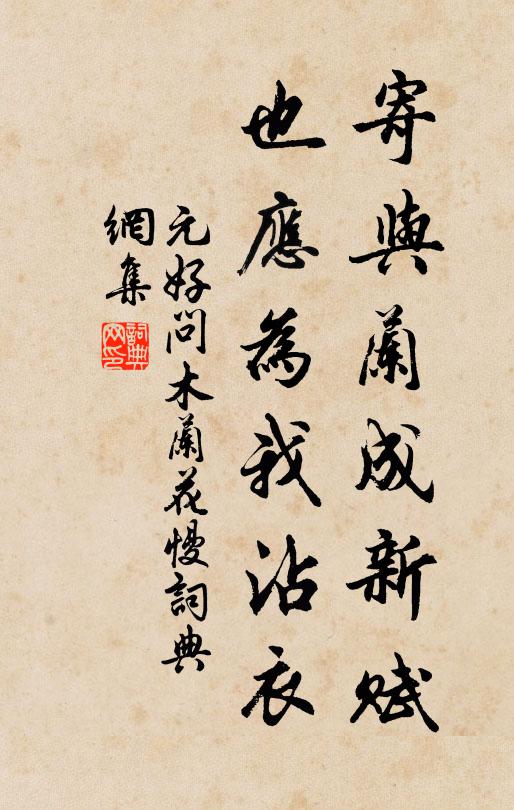 寄與蘭成新賦
也應為我沾衣
元好問木蘭花慢詞典
網集
詞典網印